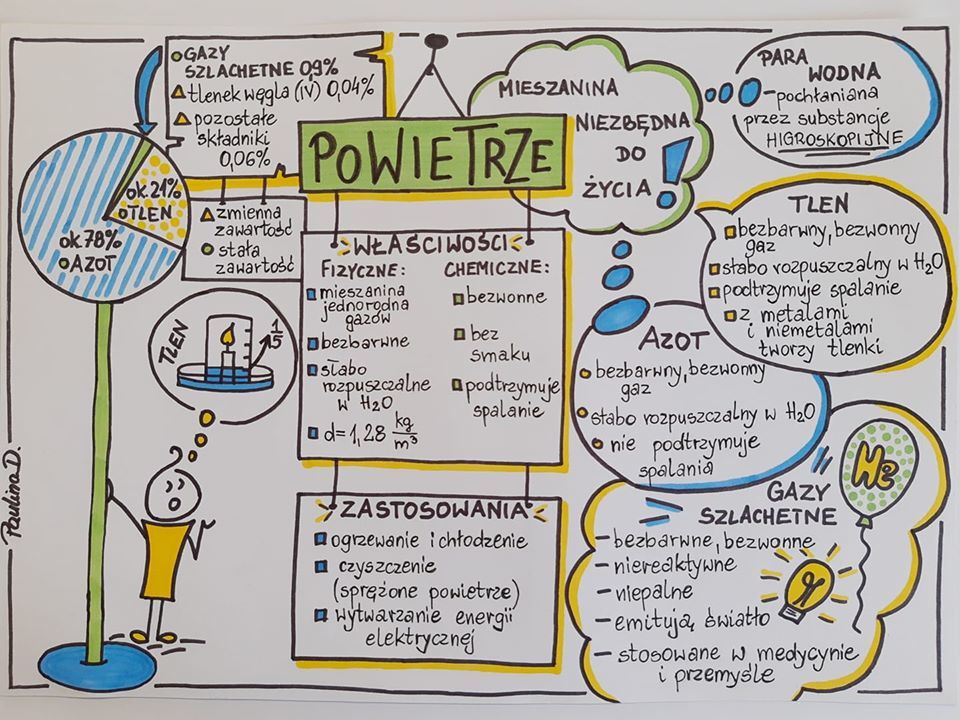 GAZY
SZLACHETNE 0,9%
tlenek węgla (IV) 0,04%
pozostałe
składniki
0,06%
POWIETRZE
MIESZANINA
NIEZBĘDNA
DO
ŻYCIA!
PARA
WODNA
– pochłaniana
przez substancje
HIGROSKOPIJNE
ok. 21%
TLEN
ok. 78%
AZOT
zmienna
zawartość
stała
zawartość
WŁAŚCIWOŚCI
FIZYCZNE:
mieszanina
jednorodna
gazów
bezbarwne
słabo
rozpuszczalne
w H2O
d=1,28 kg/m³
CHEMICZNE:
bezwonne
bez
smaku
podtrzymuje
spalanie
TLEN
bezbarwny, bezwonny
gaz
słabo rozpuszczalny w H2O
podtrzymuje spalanie
z metalami
i niemetalami
tworzy tlenki
AZOT
bezbarwny, bezwonny
gaz
słabo rozpuszczalny w H2O
nie podtrzymuje
spalania
TLEN
1/5
ZASTOSOWANIA
ogrzewanie i chłodzenie
czyszczenie
(sprężone powietrze)
wytwarzanie energii
elektrycznej
GAZY
SZLACHETNE
– bezbarwne, bezwonne
– niereaktywne
– niepalne
– emitują światło
– stosowane w medycynie
i przemyśle
He
Paulina D.